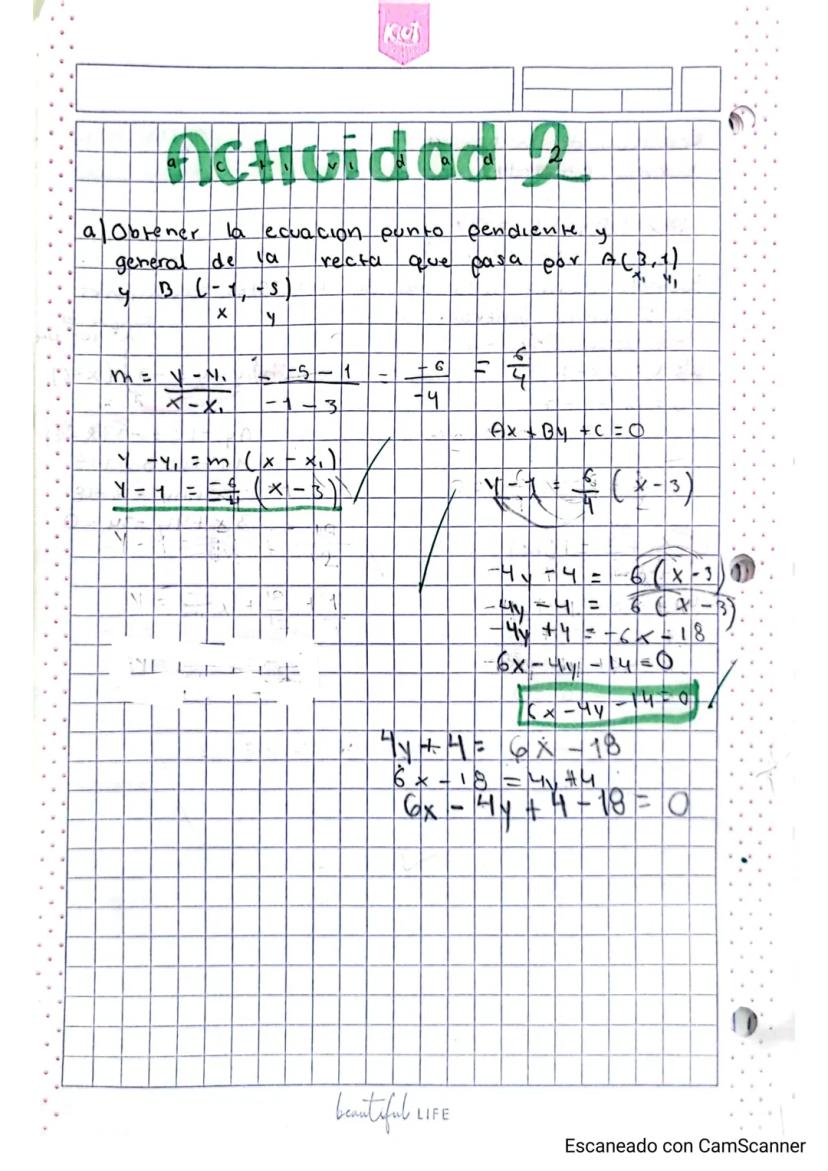 Kiut
Actividad 2
a) Obtener la ecuación punto pendiente y
general de la recta que pasa por A(3,1)
x₁ y₁
y B (-1,-5)
x y
m = y-y₁/x-x₁ = -5-1/-1-3 = -6/-4 = 6/4
Ax + By + C = 0
y - y₁ = m (x - x₁)
y - 1 = -6/-4 (x - 3)
y - 1 = 6/4 (x - 3)
-4y - 4 = 6(x-3)
-4y - 4 = 6(x-3)
-4y + 4 = -6x - 18
6x - 4y - 14 = 0
6x - 4y - 14 = 0
4y + 4 = 6x - 18
6x - 18 = 4y + 4
6x - 4y + 4 - 18 = 0
beautiful LIFE
Escaneado con CamScanner